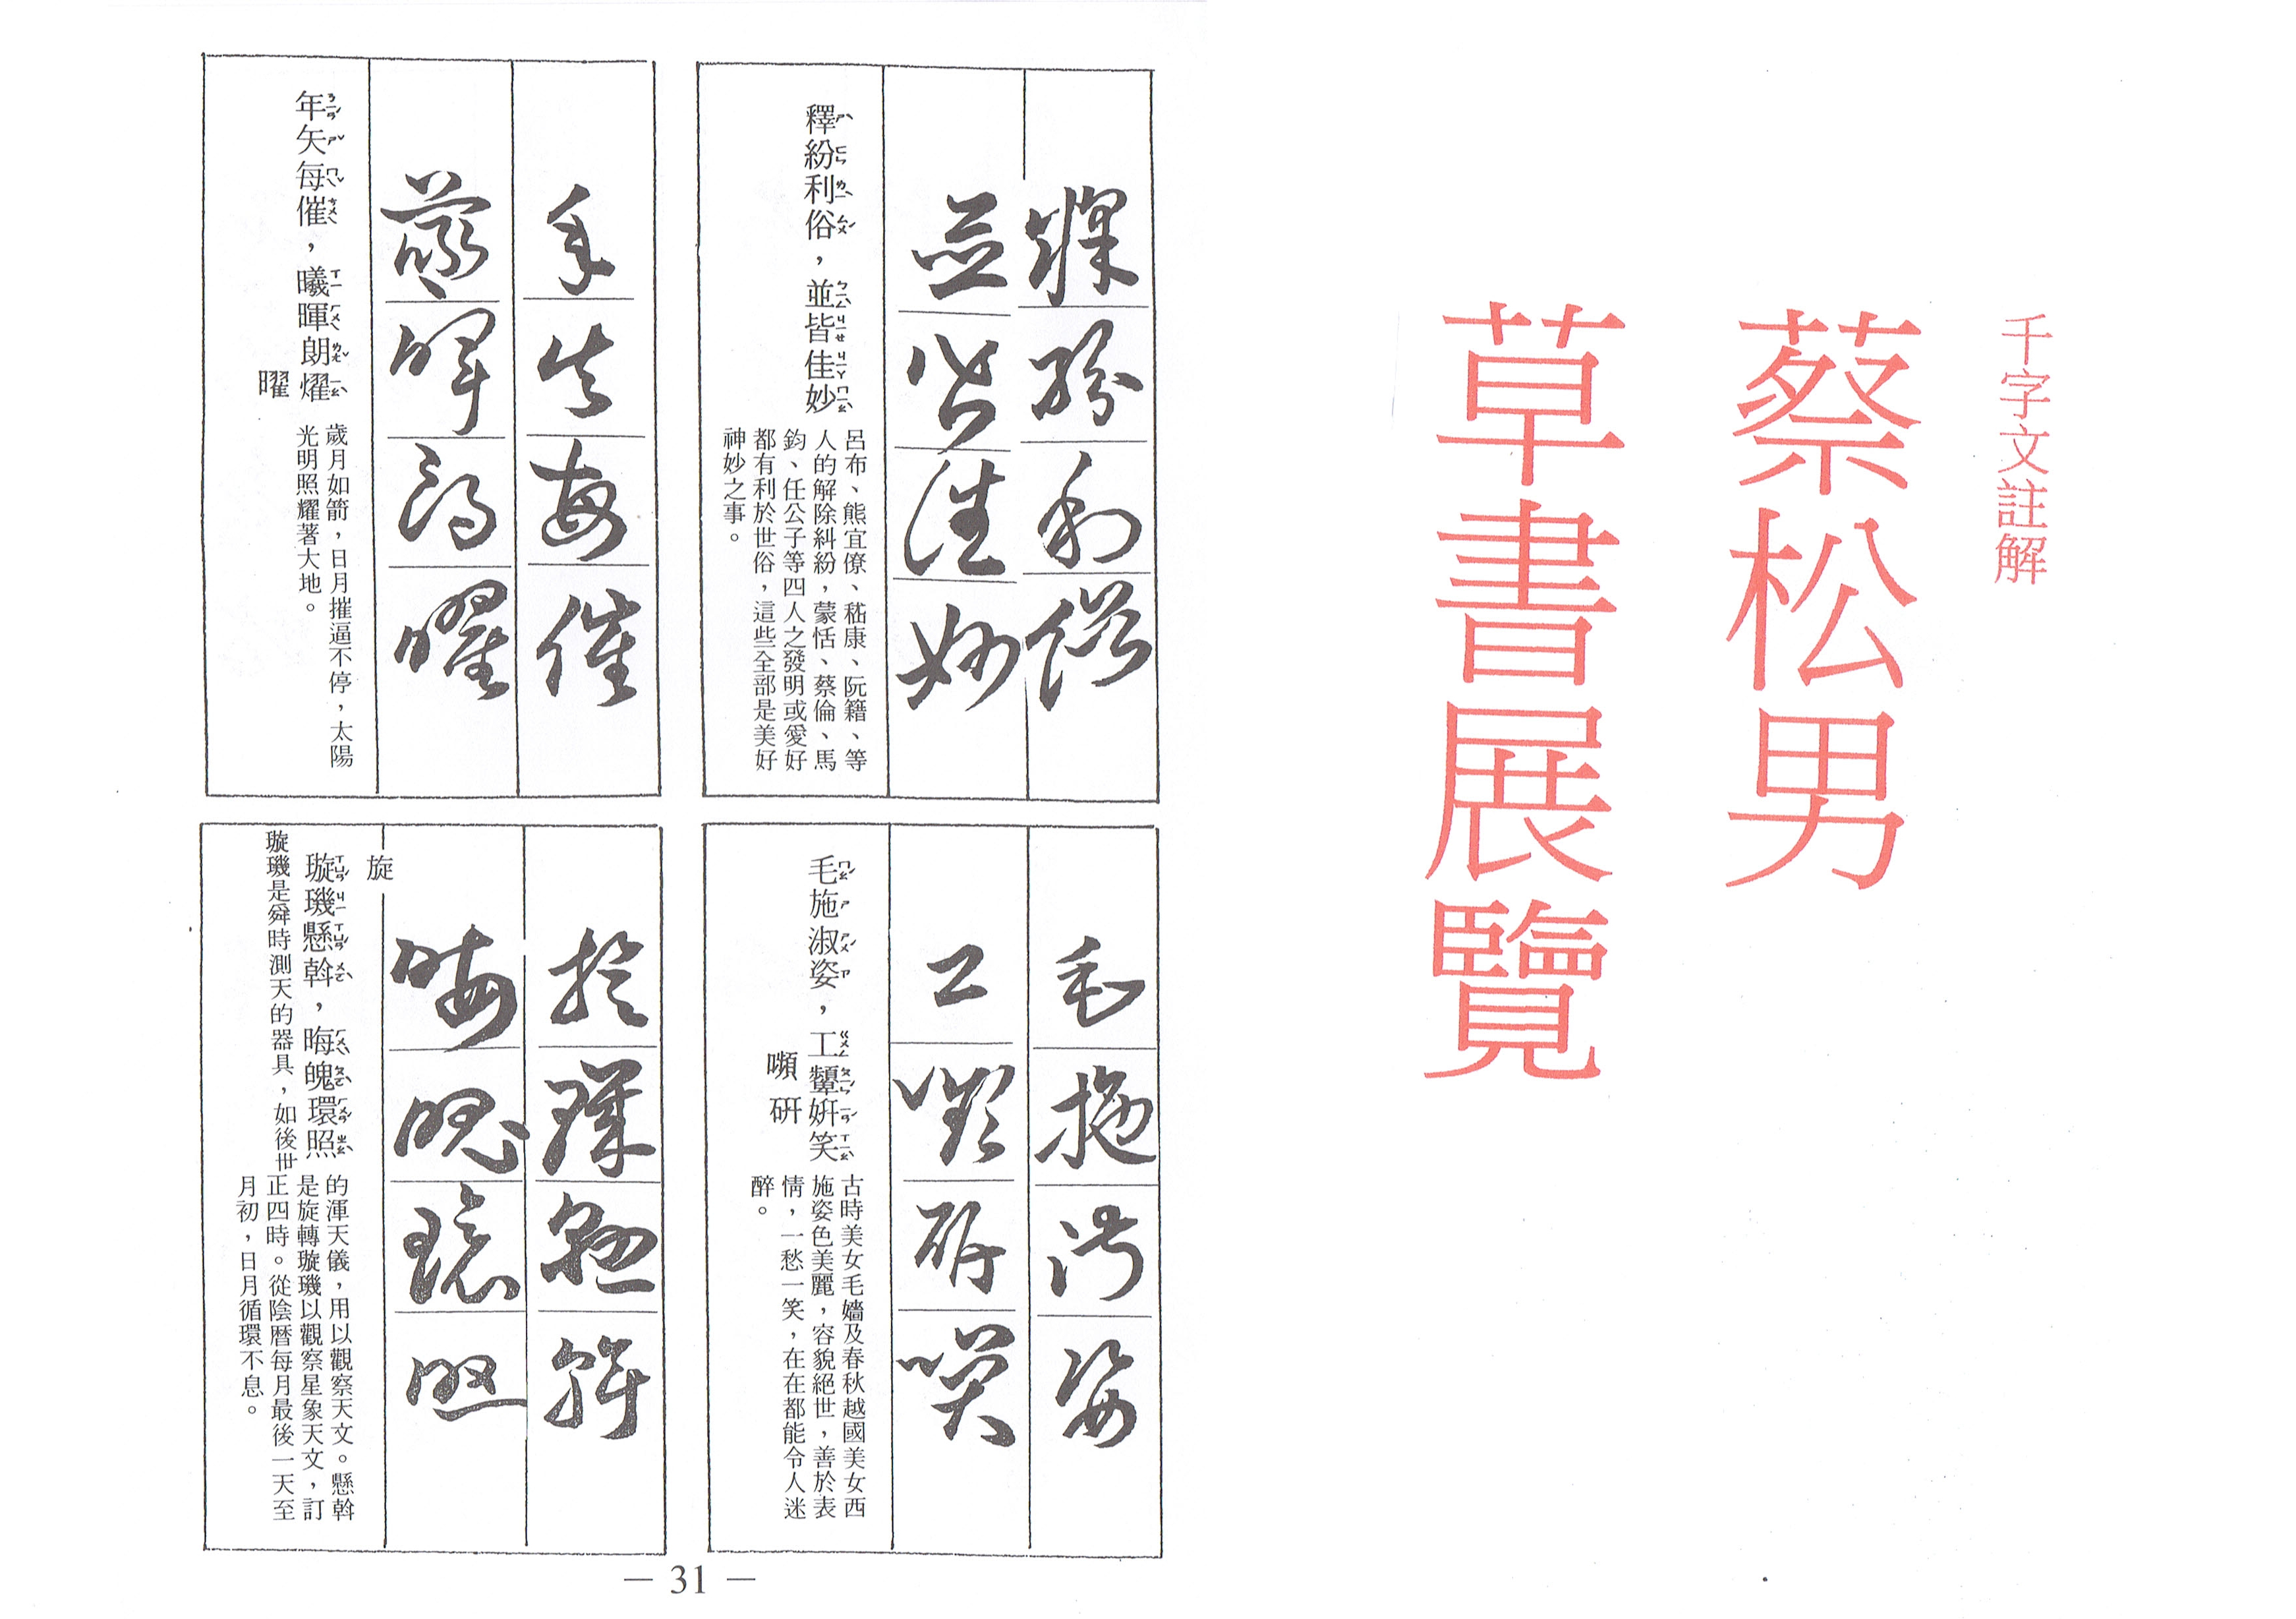 千字文註解
蔡松男
草書展覽
釋紛利俗
並皆佳妙
釋紛利俗，並皆佳妙
呂布、熊宜僚、嵇康、阮籍、等
人的解除糾紛，蒙恬、蔡倫、馬
鈞、任公子等四人之發明或愛好
都有利於世俗，這些全部是美好
神妙之事。
毛施淑姿
工嚬研笑
毛施淑姿，工顰妍笑
嚬研
古時美女毛嬙及春秋越國美女西
施姿色美麗，容貌絕世，善於表
情，一愁一笑，在在都能令人迷
醉。
年矢每催
曦暉朗曜
年矢每催，曦暉朗燿
曜
歲月如箭，日月摧逼不停，太陽
光明照耀著大地。
旋璣懸斡
晦魄環照
旋
璇璣懸斡，晦魄環照
璇璣是舜時測天的器具，如後世
的渾天儀，用以觀察天文。懸斡
是旋轉璇璣以觀察星象天文，訂
正四時。從陰曆每月最後一天至
月初，日月循環不息。
— 31 —